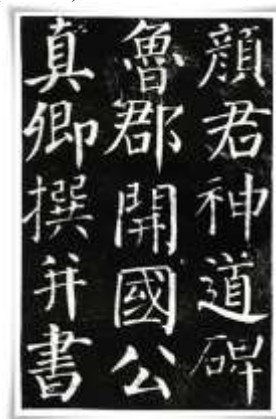 顏君神道碑
魯郡開國公
真卿撰并書